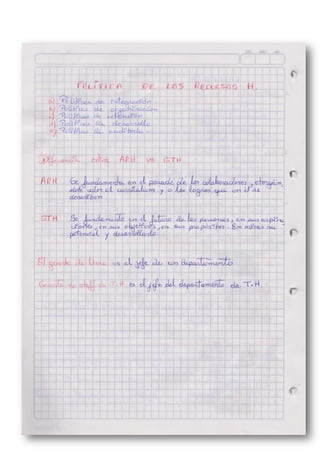 POLÍTICA DE LOS RECURSOS H.
a) Políticas de integración
b) Políticas de organización
c) Políticas de retención
d) Políticas de desarrollo
e) Políticas de auditoría.
Diferencia entre ARH vs GTH
ARH Se fundamenta en el pasado de los colaboradores, otorgan,
este valor al curriculum y a los logros que en él se
describen
GTH Se fundamenta en el futuro de las personas, en sus aspira
ciones, en sus objetivos, en sus propósitos. Con miras su
potencial y desarrollarlo.
El gerente de línea es el jefe de un departamento
Gerente de staff de T.H. es el jefe del departamento de T-H.